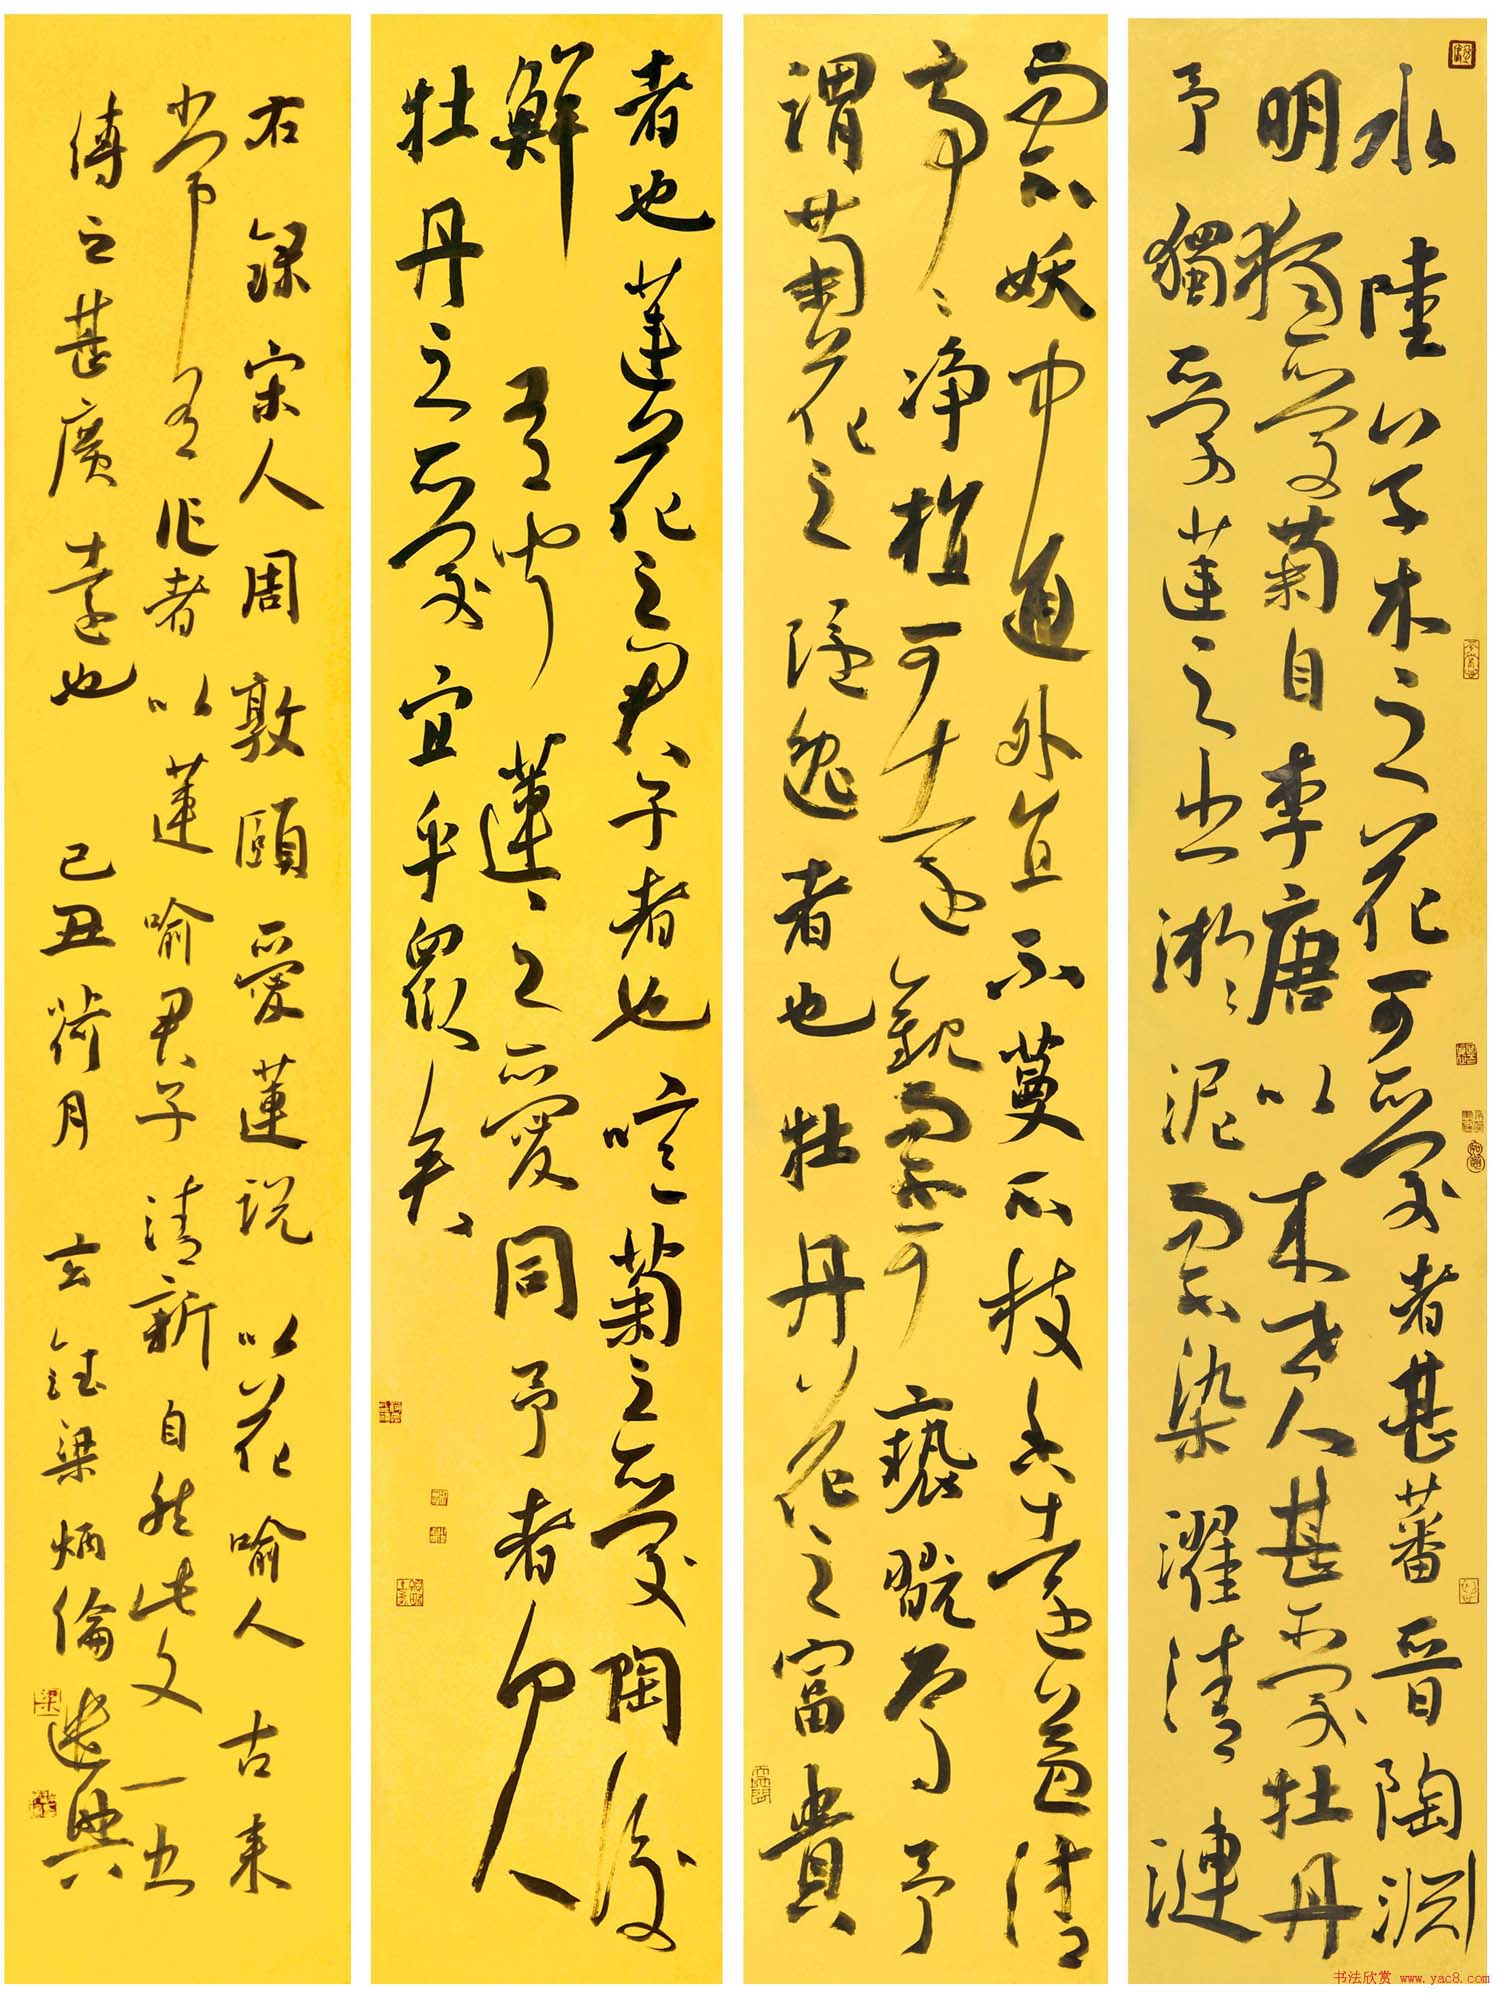 水陸草木之花可愛者甚蕃晋陶淵
明獨愛菊自李唐以来世人甚愛牡丹
予獨愛蓮之出淤〻泥而不染濯清漣
而不妖中通外直不蔓不枝香遠益清
亭〻净植可遠觀而不可褻翫焉予
謂菊花之隱逸者也牡丹花之富貴
者也蓮花之君子者也噫菊之愛陶後
鮮有聞蓮〻之愛同予者何人
牡丹之愛宜乎眾矣
右錄宋人周敦頤愛蓮說以花喻人古来
常有作者以蓮喻君子清新自然此文一出
傳之甚廣遠也己丑荷月玄鈺梁炳倫遣興
书法欣赏 www.yac8.com